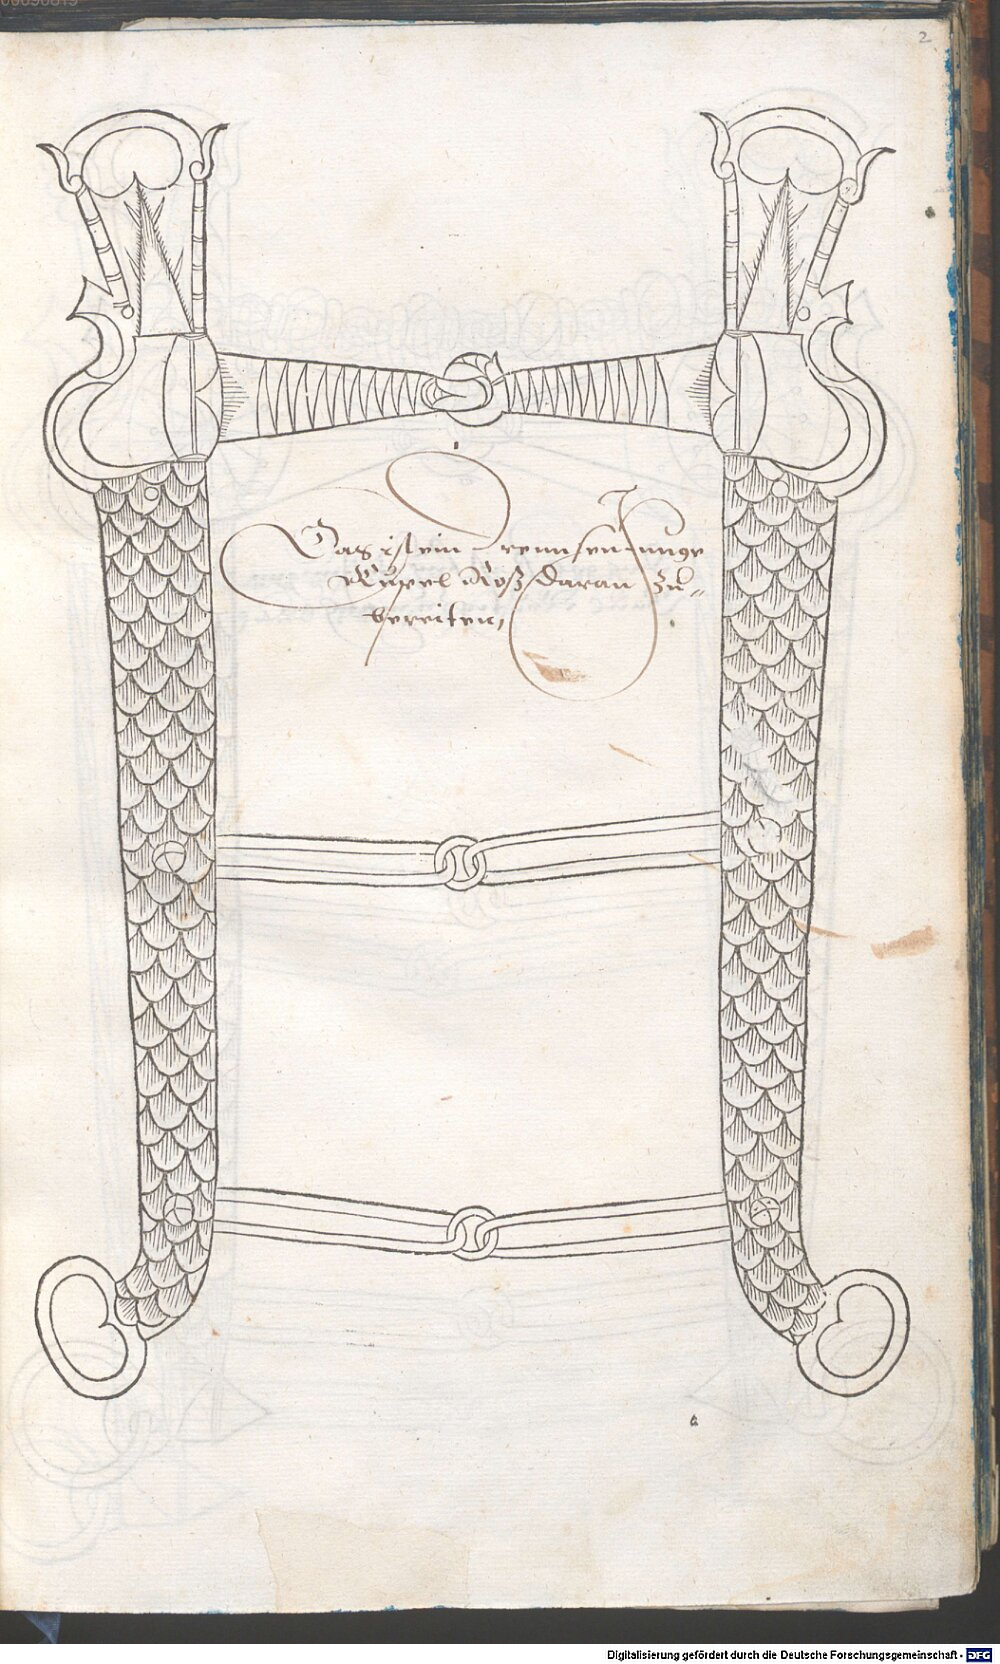 2
Das ist ein Trensen Junge
Rupel Roß daran zu-
bereiten,
a
Digitalisierung gefördert durch die Deutsche Forschungsgemeinschaft - DFG